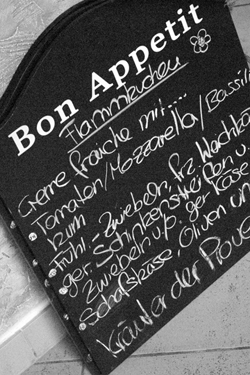 Bon Appetit
Flammkuchen
Creme fraiche mit....
Tomaten/Mozzarella/Basili
kum
Frühl. Zwiebeln, frz. Weichkä
ger. Schinkenstreifen u
Zwiebeln u./o. ger. Käse
Schafskäse, Oliven un
Kräuter der Prove